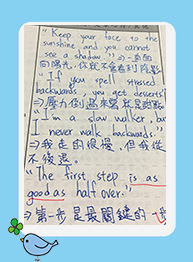 "Keep your face to the
sunshine and you cannot
see a shadow." ⇒ 面向
陽光,你就不會看到陰影
"If you spell stressed
backwards, you get desserts"
⇒壓力倒過來寫就是甜點
"I'm a slow walker, but
I never walk backwards."
⇒我走的很慢,但我從
不後退。
"The first step is as
good as half over."
⇒第一步是最關鍵的一步